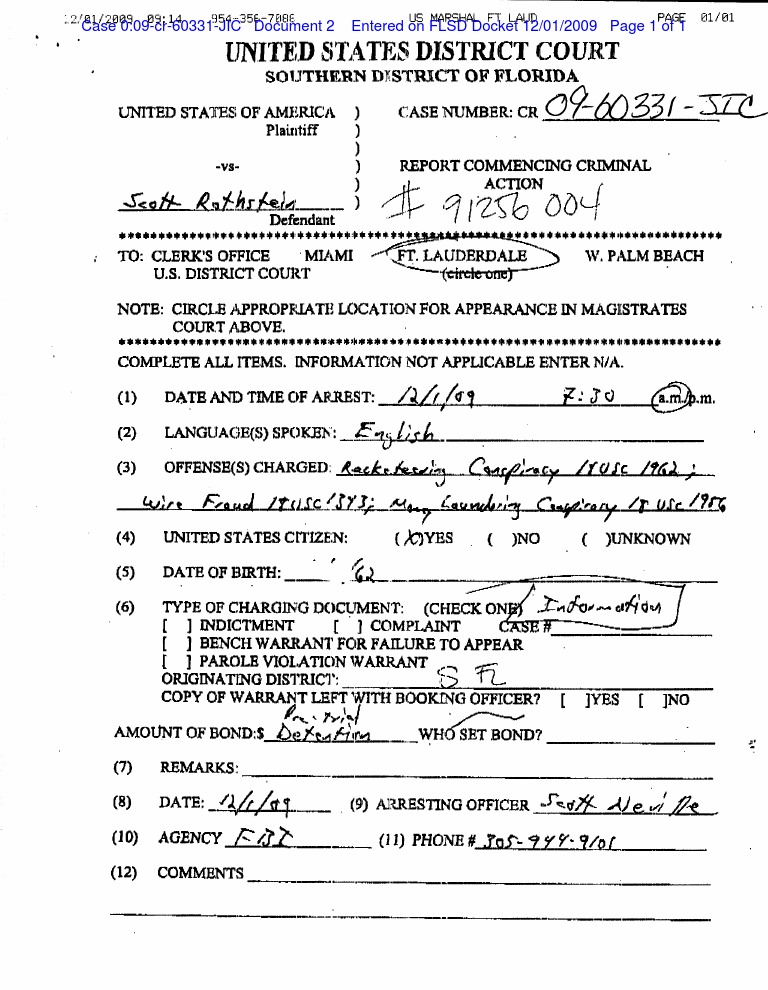 12/01/2009 09:14 954-356-7086 US MARSHAL FT LAUD PAGE 01/01
Case 0:09-cr-60331-JIC Document 2 Entered on FLSD Docket 12/01/2009 Page 1 of 1
UNITED STATES DISTRICT COURT
SOUTHERN DISTRICT OF FLORIDA
UNITED STATES OF AMERICA ) CASE NUMBER: CR 09-60331-JIC
Plaintiff )
)
-vs- ) REPORT COMMENCING CRIMINAL
) ACTION
Scott Rothstein ) # 91256 004
Defendant
************************************************************
TO: CLERK'S OFFICE MIAMI FT. LAUDERDALE W. PALM BEACH
U.S. DISTRICT COURT (circle one)
NOTE: CIRCLE APPROPRIATE LOCATION FOR APPEARANCE IN MAGISTRATES
COURT ABOVE.
************************************************************
COMPLETE ALL ITEMS. INFORMATION NOT APPLICABLE ENTER N/A.
(1) DATE AND TIME OF ARREST: 12/1/09 7:30 a.m./p.m.
(2) LANGUAGE(S) SPOKEN: English
(3) OFFENSE(S) CHARGED: Racketeering Conspiracy 18 USC 1962;
Wire Fraud 18 USC 1343; Money Laundering Conspiracy 18 USC 1956
(4) UNITED STATES CITIZEN: (X)YES ( )NO ( )UNKNOWN
(5) DATE OF BIRTH: 62
(6) TYPE OF CHARGING DOCUMENT: (CHECK ONE) Information
[ ] INDICTMENT [ ] COMPLAINT CASE #
[ ] BENCH WARRANT FOR FAILURE TO APPEAR
[ ] PAROLE VIOLATION WARRANT
ORIGINATING DISTRICT: S FL
COPY OF WARRANT LEFT WITH BOOKING OFFICER? [ ]YES [ ]NO
AMOUNT OF BOND:$ Pre-trial Detention WHO SET BOND?
(7) REMARKS:
(8) DATE: 12/1/09 (9) ARRESTING OFFICER Scott Neville
(10) AGENCY FBI (11) PHONE # 305-944-9101
(12) COMMENTS